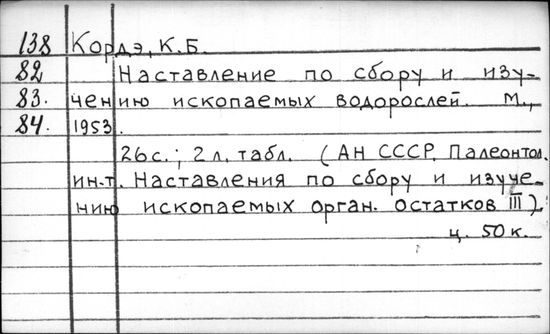 138 Кордэ, К.Б.
82 Наставление по сбору и изу-
83. чению ископаемых водорослей. М.,
84. 1953.
26с.; 2л. табл. (АН СССР. Палеонтол.
ин-т. Наставления по сбору и изуче-
нию ископаемых орган. остатков III).
ц. 50к.